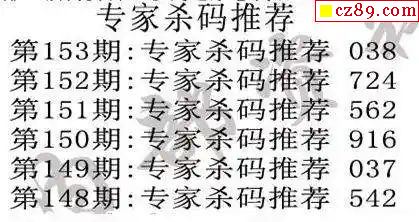 cz89.com
专家杀码推荐
第153期:专家杀码推荐 038
第152期:专家杀码推荐 724
第151期:专家杀码推荐 562
第150期:专家杀码推荐 916
第149期:专家杀码推荐 037
第148期:专家杀码推荐 542